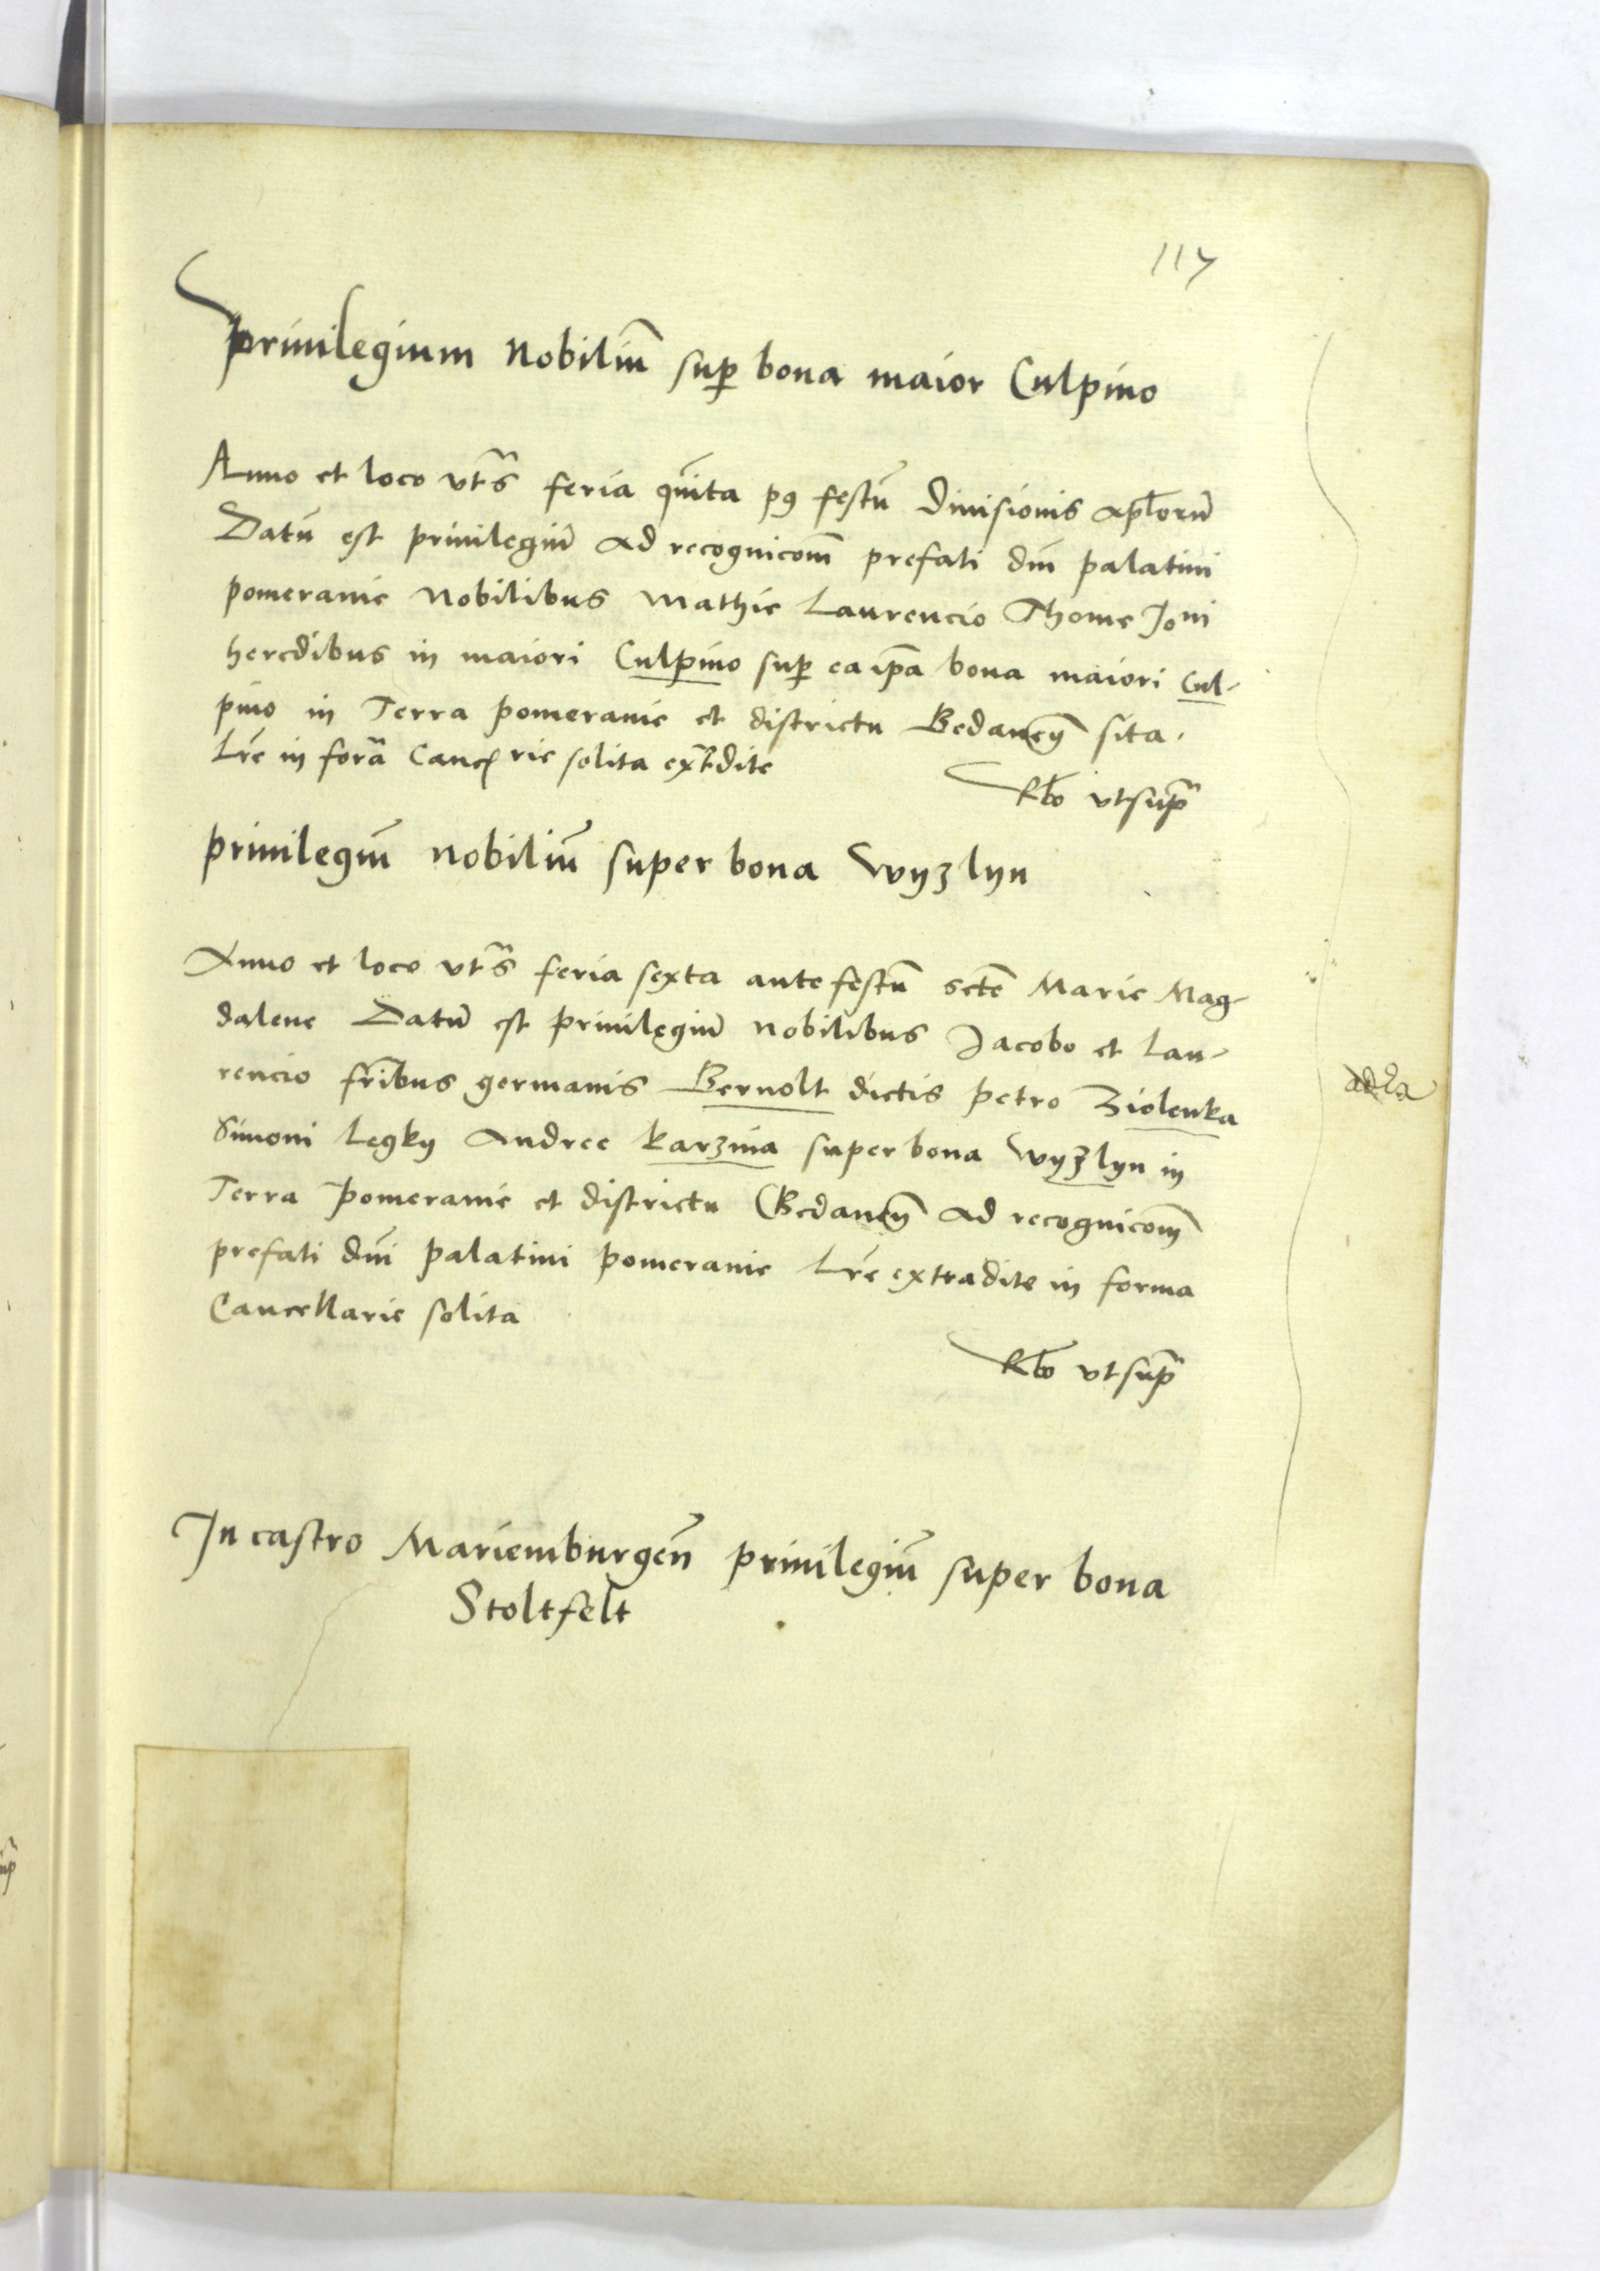 117
Privilegium Nobiliū sup bona maior Culpino
Anno et loco vts feria qnita p9 festū Divisionis aplorū
Datū est privilegiū ad recognicōm prefati dni palatini
pomeranie Nobilibus Mathie Laurencio Thome Joni
heredibus in maiori Culpino sup ea ipa bona maiori Cul-
pino in Terra pomeranie et districtu Gedaneñ sita.
Lre in fora Canc rie solita extdite
Rlō vt supª
privilegiū nobiliū super bona Wyzlyn
Anno et loco vts feria sexta ante festū scte Marie Mag-
dalene Datū est privilegiū nobilibus Jacobo et Lau-
rencio fribus germanis Bernolt dictis petro Ziolenka
Simoni Legky Andree karznia super bona Wyzlyn in
Terra Pomeranie et districtu Gedaneñ ad recognicōm
prefati dni palatini pomeranie Lre extradite in forma
Cancellarie solita
Rlō vt supª
In castro Mariemburgeñ privilegiū super bona
Stoltfelt